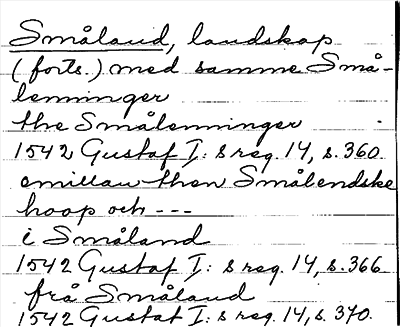 Småland, landskap
(forts.) med samme Små-
lenninger
the Smålenninger
1542 Gustaf I:s reg. 14, s. 360.
emillan then Smålendske
hoop och ---
i Småland
1542 Gustaf I:s reg. 14, s. 366
frå Småland
1542 Gustaf I:s reg. 14, s. 370.